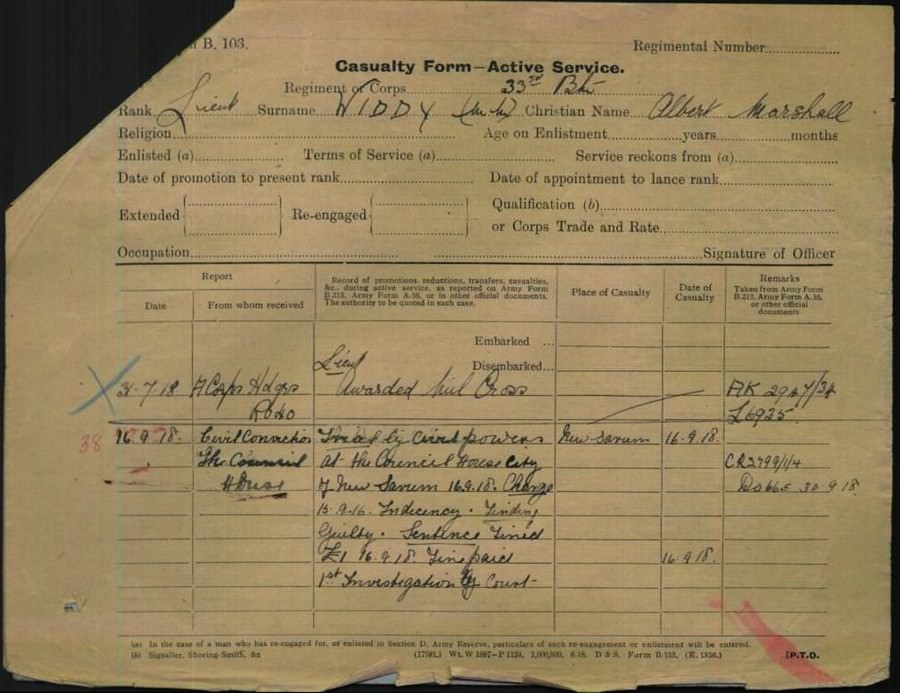 B. 103.
Regimental Number
Casualty Form—Active Service.
Regiment or Corps 33rd Btn
Rank Lieut Surname WIDDY (M.M) Christian Name Albert Marshall
Religion Age on Enlistment years months
Enlisted (a) Terms of Service (a) Service reckons from (a)
Date of promotion to present rank Date of appointment to lance rank
Extended Re-engaged Qualification (b)
or Corps Trade and Rate
Occupation Signature of Officer
Report
Date
From whom received
Record of promotions, reductions, transfers, casualties,
&c., during active service, as reported on Army Form
B.213, Army Form A.36, or in other official documents.
The authority to be quoted in each case.
Place of Casualty
Date of
Casualty
Remarks
Taken from Army Form
B.213, Army Form A.36,
or other official
documents
Embarked ...
Disembarked...
Lieut
31.7.18 A Corps Hdqrs Awarded Mil Cross
38
16.9.18. Civil Conviction Tried by Civil powers New Sarum 16.9.18.
The Council at the Council House City CR2799/1/4
House of New Sarum 16.9.18. Charge Do66E 30.9.18
Indecency. Finding
Guilty. Sentence Fined
£1 16.9.18. Fine paid 16.9.18.
1st Investigation by Court
(a) In the case of a man who has re-engaged for, or enlisted in Section D, Army Reserve, particulars of such re-engagement or enlistment will be entered.
(b) Signaller, Shoeing-Smith, &c (17591.) Wt. W 1887—P 1124. 1,000,000. 6.18. D & S. Form B/103. (E. 1256.) [P.T.O.